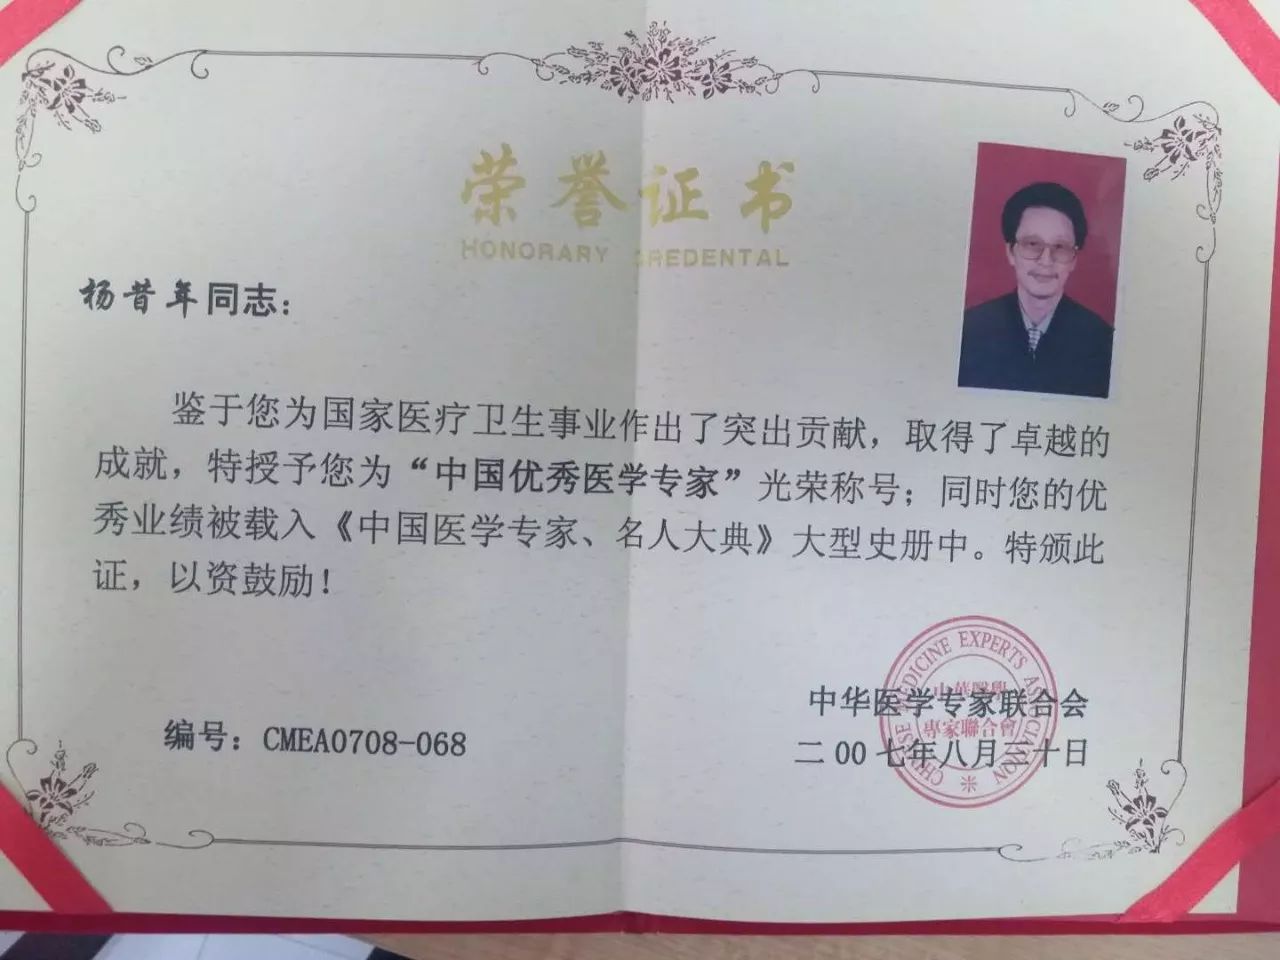 荣誉证书
HONORARY CREDENTAL
杨昔年同志：
鉴于您为国家医疗卫生事业作出了突出贡献，取得了卓越的
成就，特授予您为“中国优秀医学专家”光荣称号；同时您的优
秀业绩被载入《中国医学专家、名人大典》大型史册中。特颁此
证，以资鼓励！
中华医学专家联合会
编号：CMEA0708-068
二00七年八月三十日
CHINESE MEDICINE EXPERTS ASSOCIATION
中華醫學
專家聯合會